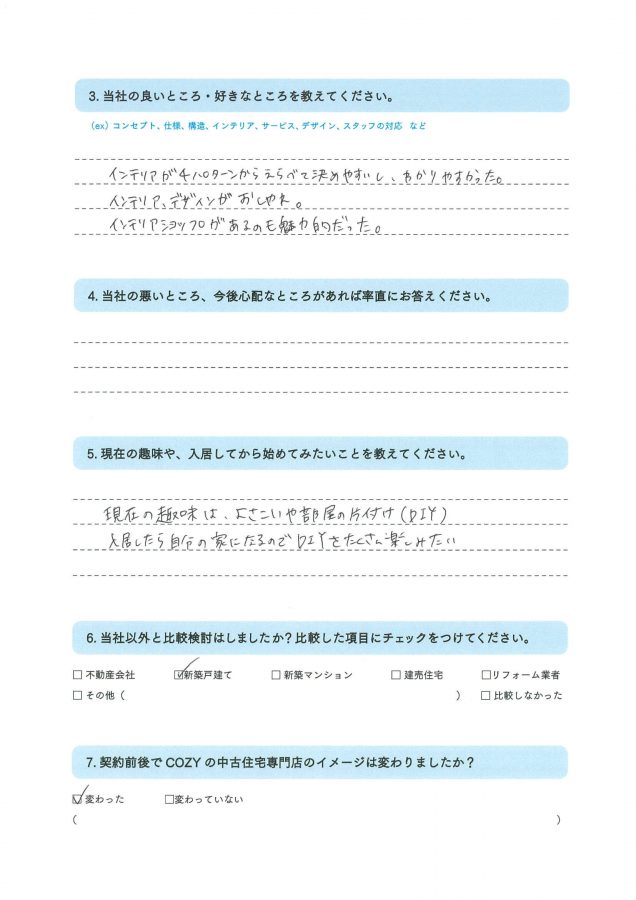 3. 当社の良いところ・好きなところを教えてください。
（ex）コンセプト、仕様、構造、インテリア、サービス、デザイン、スタッフの対応　など
インテリアが4パターンからえらべて決めやすいし、わかりやすかった。
インテリア、デザインがおしゃれ。
インテリアショップがあるのも魅力的だった。
4. 当社の悪いところ、今後心配なところがあれば率直にお答えください。
5. 現在の趣味や、入居してから始めてみたいことを教えてください。
現在の趣味は、よさこいや部屋の片付け(DIY)
入居したら自分の家になるのでDIYをたくさん楽しみたい
6. 当社以外と比較検討はしましたか？比較した項目にチェックをつけてください。
□ 不動産会社　☑新築戸建て　□ 新築マンション　□ 建売住宅　□リフォーム業者
□ その他（　　　）　□ 比較しなかった
7. 契約前後で COZY の中古住宅専門店のイメージは変わりましたか？
☑ 変わった　□変わっていない
（　　　）